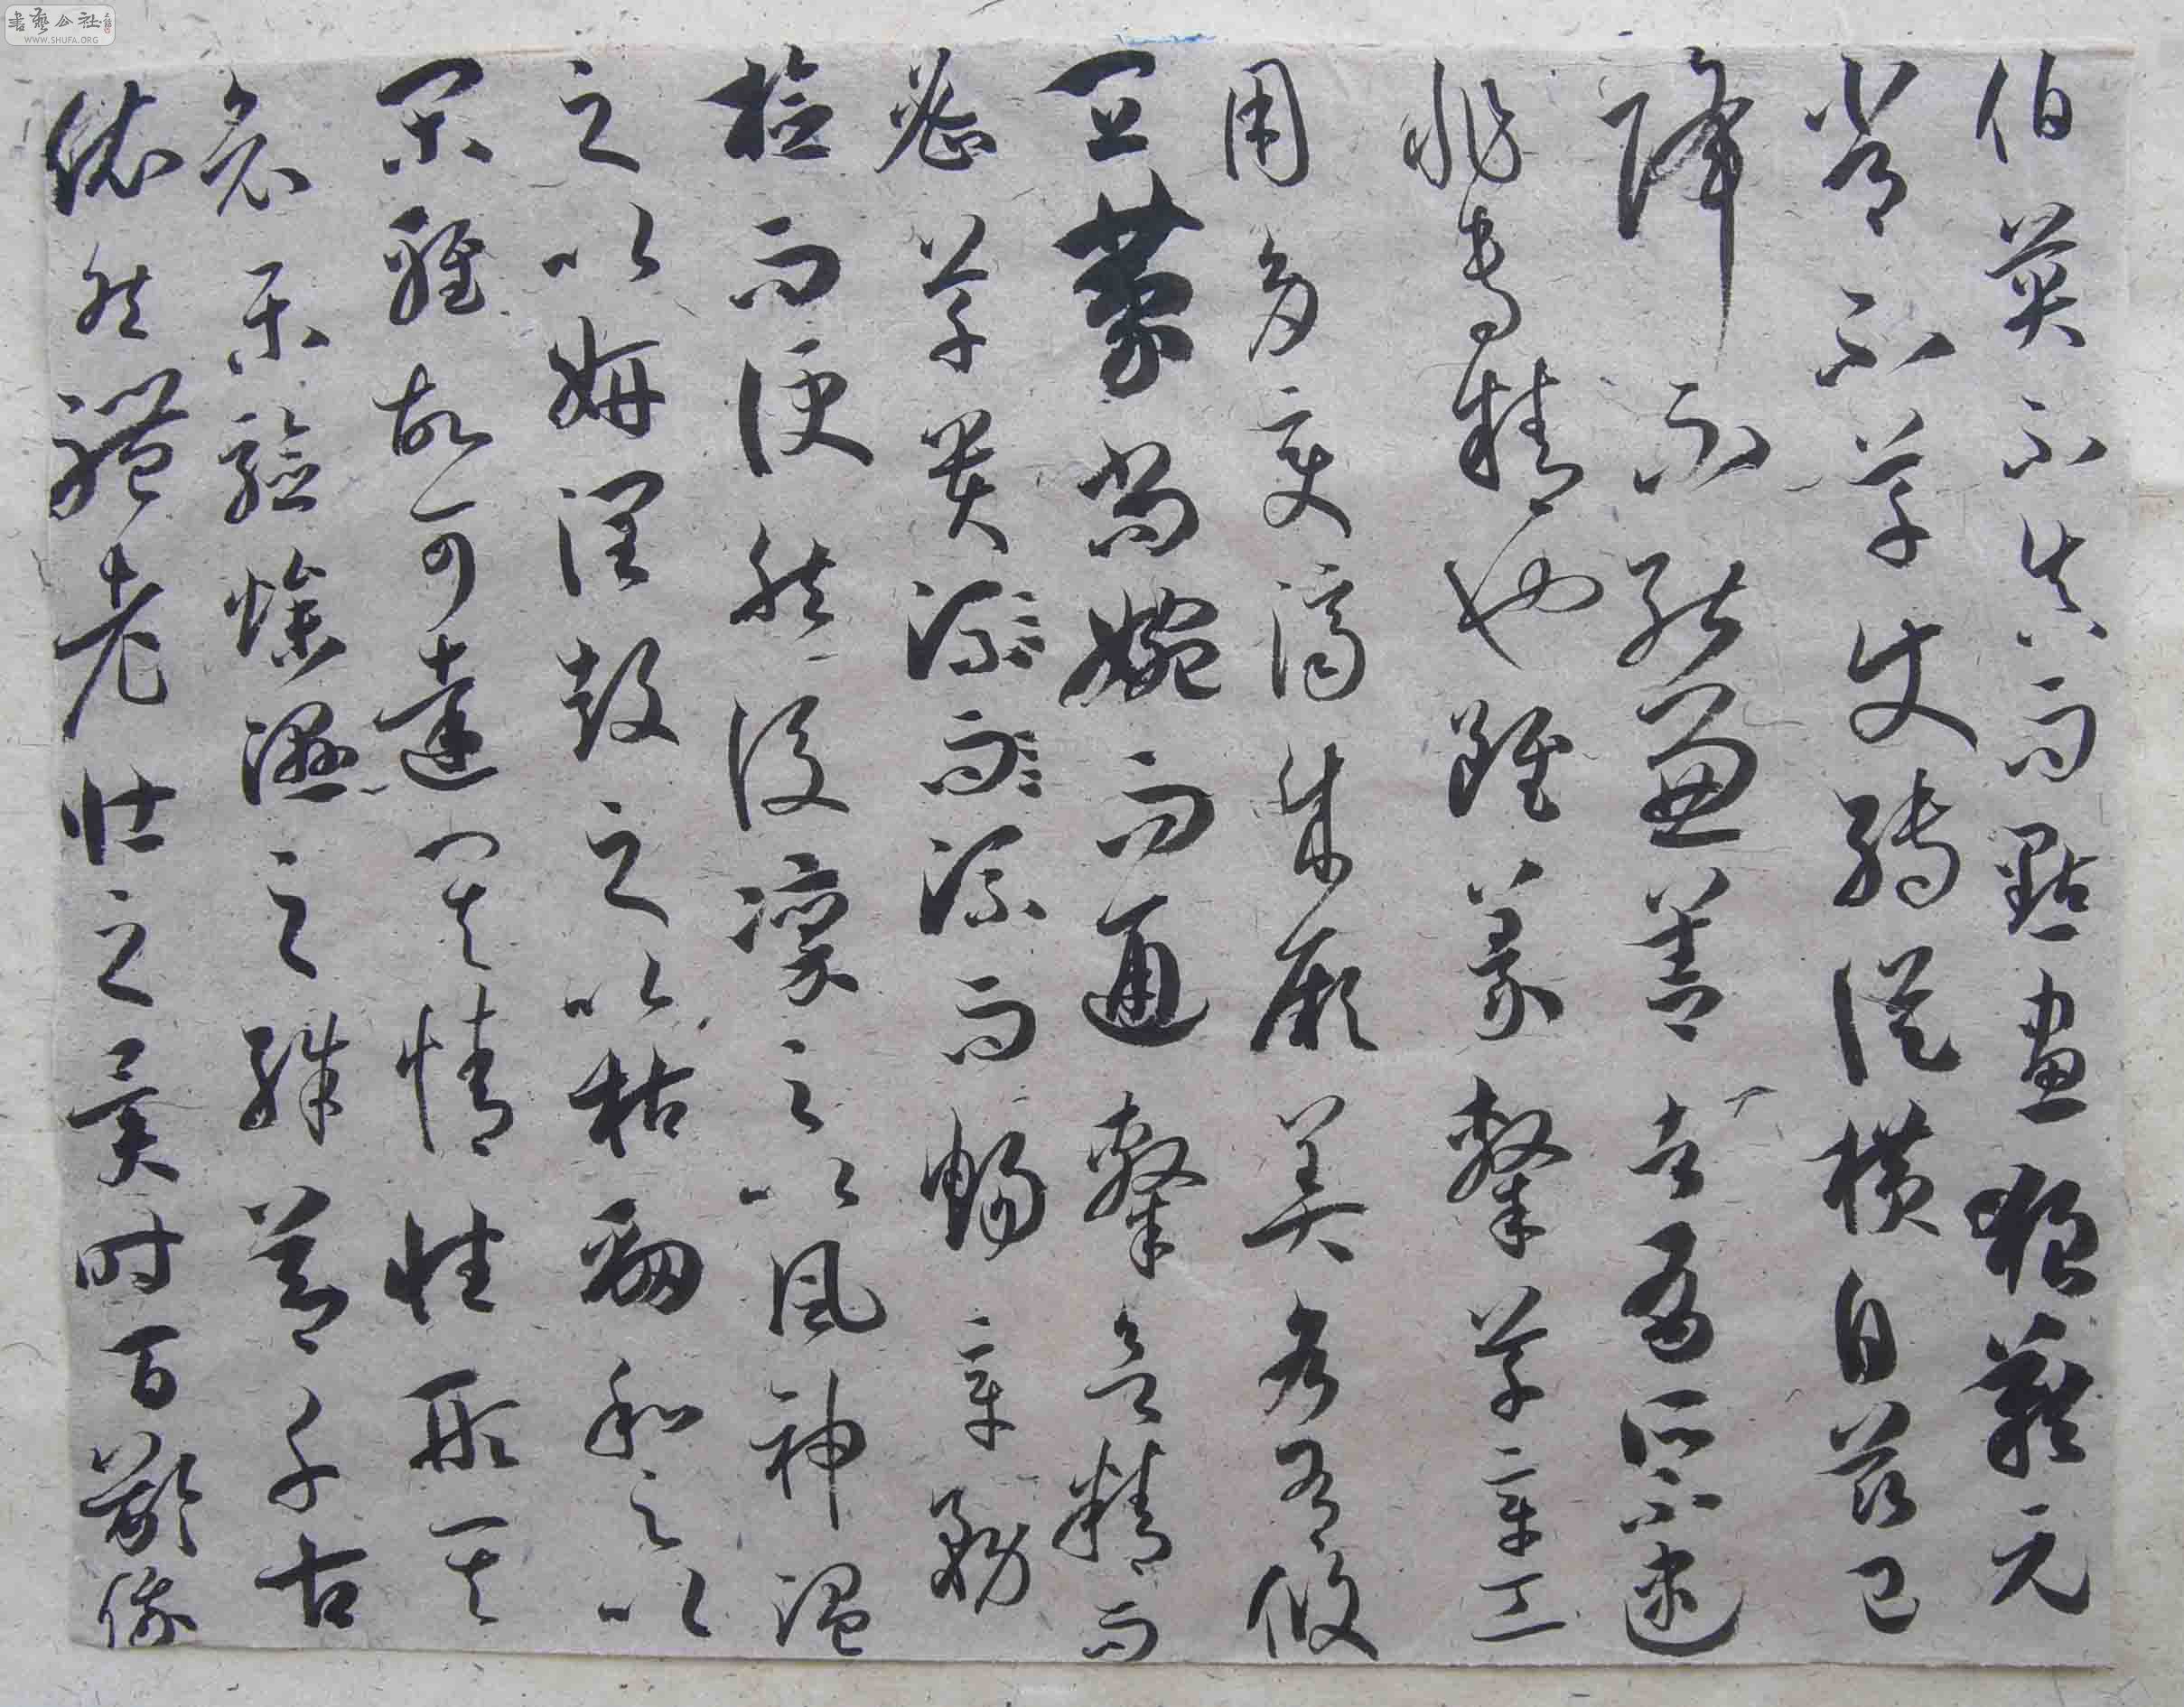 書藝公社
WWW.SHUFA.ORG
伯英不真而點畫狼藉元
常不草使轉縱橫自茲已
降不能兼善者有所不逮
非專精也雖篆隸草章工
用多變濟成厥美各有攸
宜篆尚婉而通隸欲精而
密草貴流而流而暢章務
檢而便然後凜之以風神溫
之以妍潤鼓之以枯勁和之以
閑雅故可達其情性形其
哀樂驗燥濕之殊節千古
依然體老壯之異時百齡俄